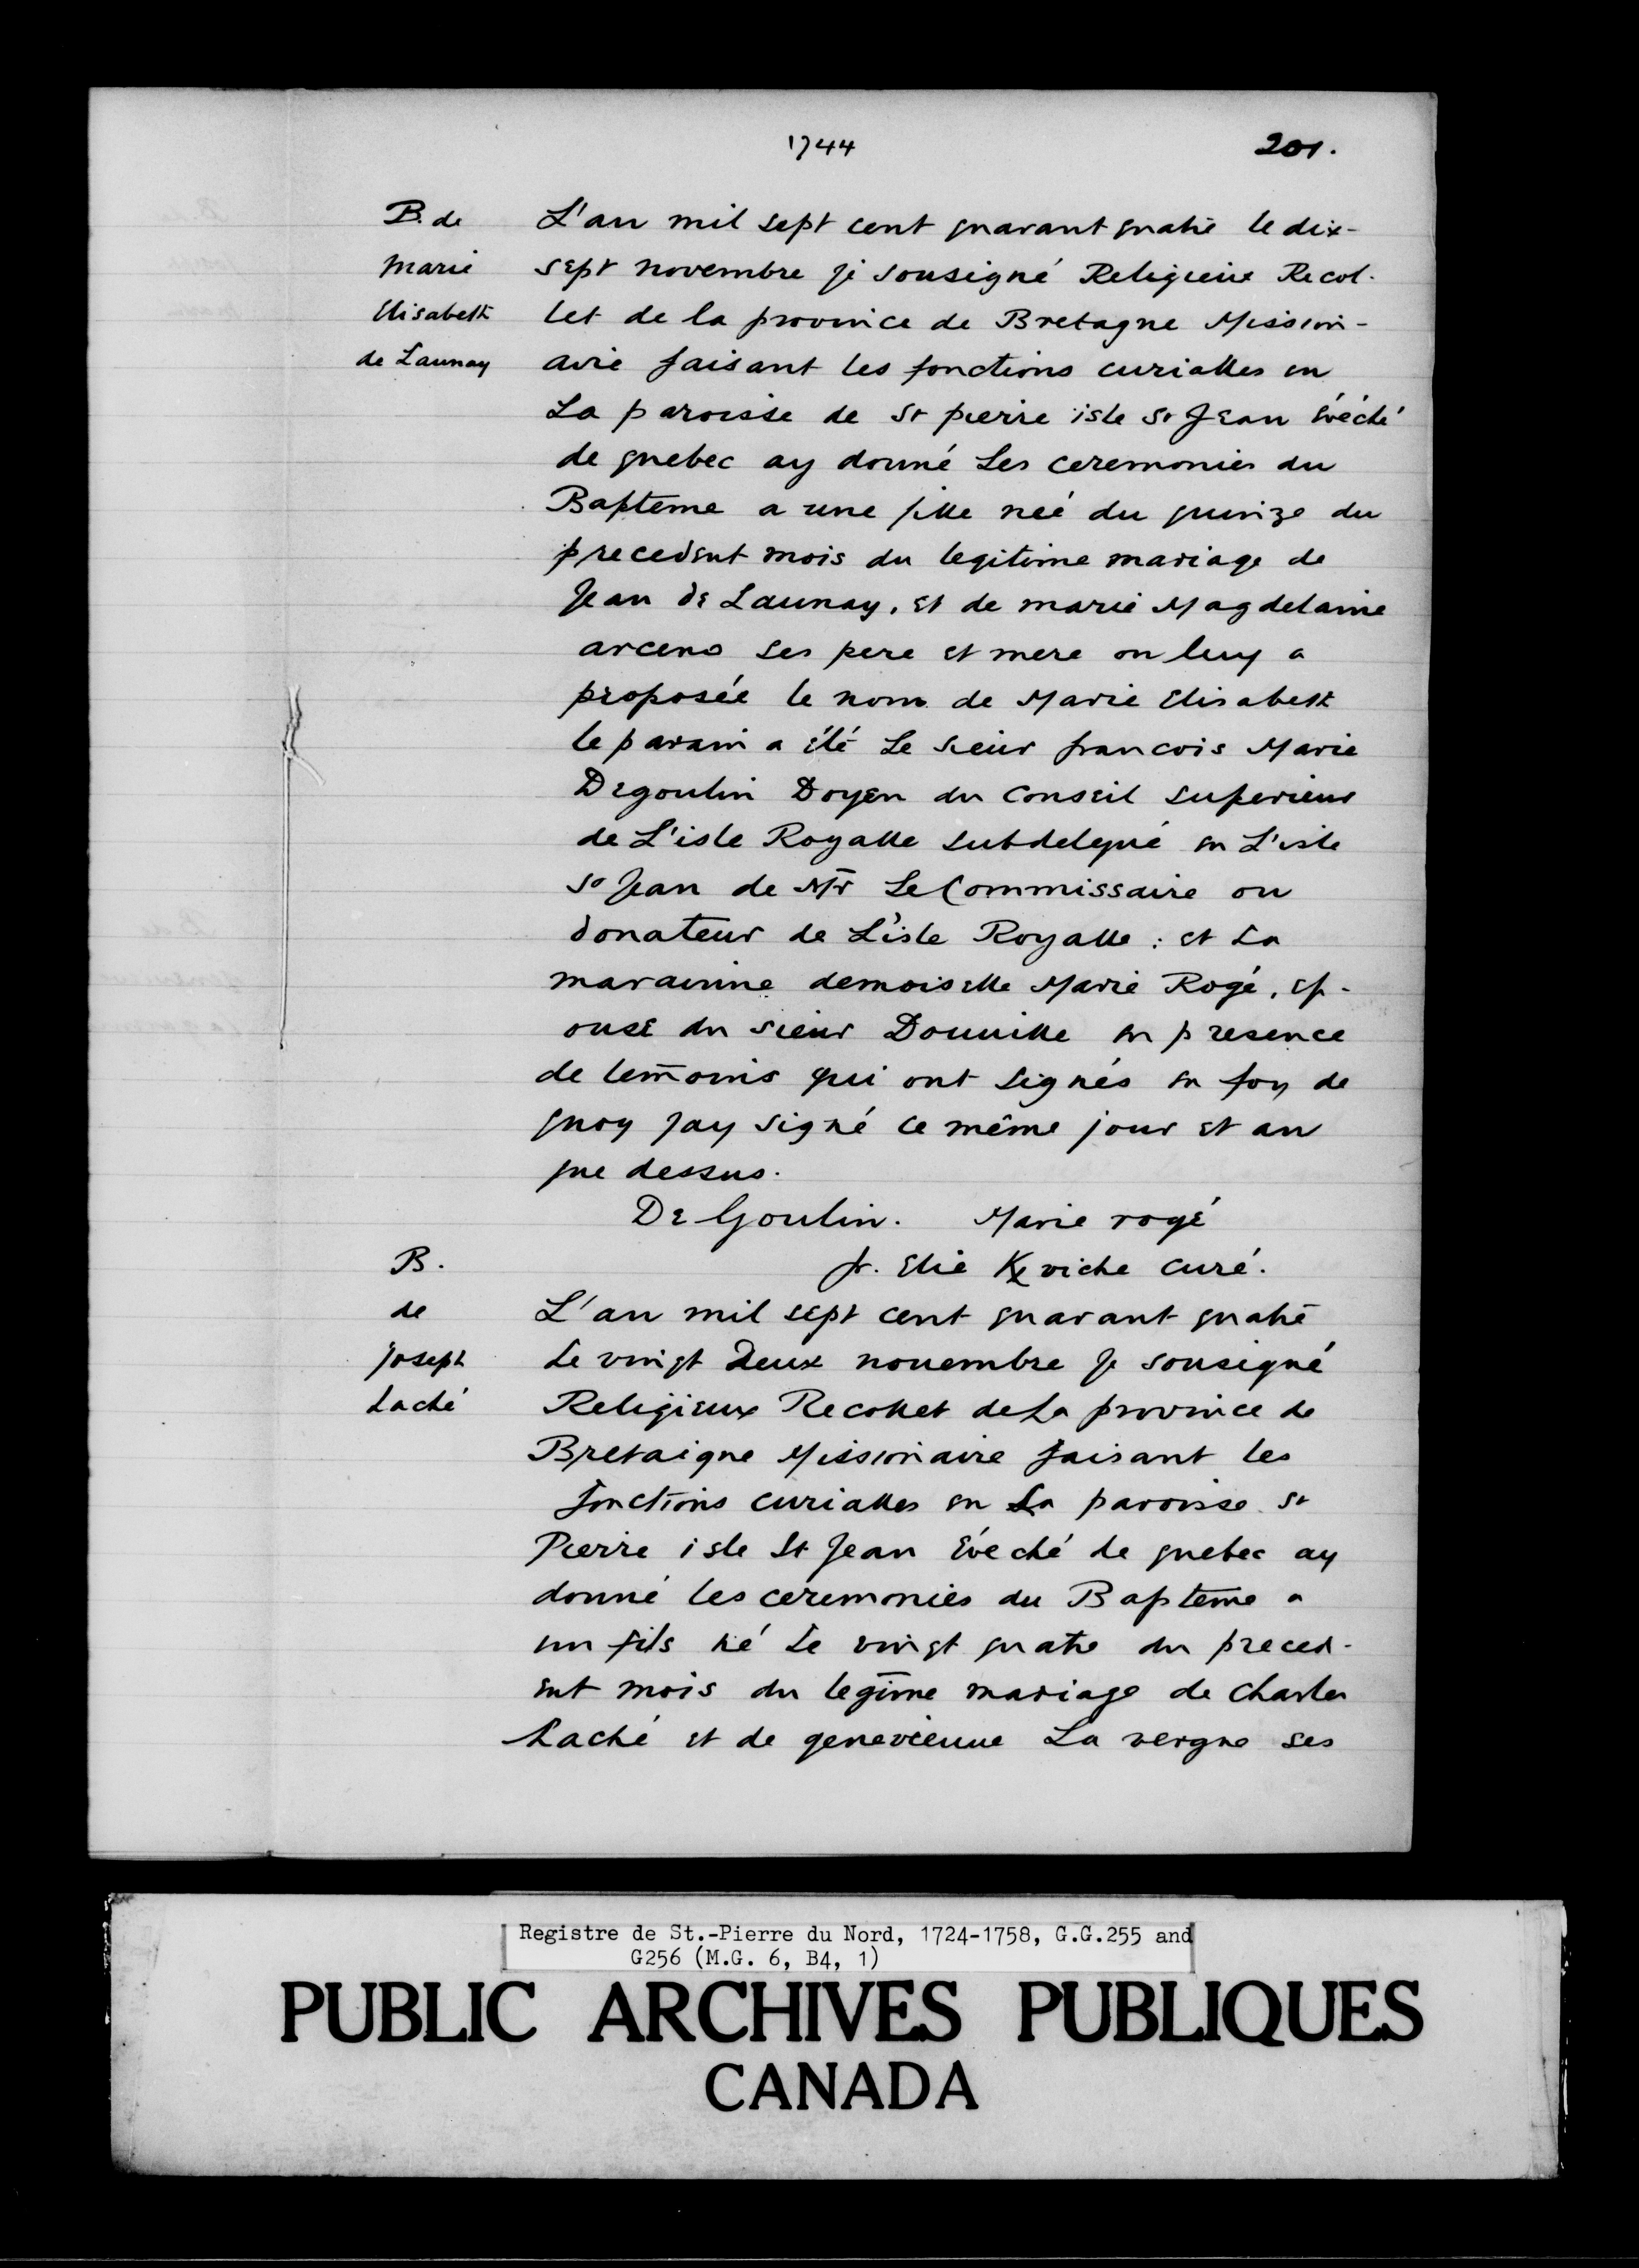 1744 201.
B. de
Marie
Elisabeth
de Launay
L'an mil sept cent quarant quatre le dix-
sept novembre je sousigné Religieux Recol-
let de la province de Bretagne Mission-
arie faisant les fonctions curialles en
La paroisse de St pierre isle St Jean évéché
de quebec ay donné Les ceremonies du
Baptême a une fille neé du quinze du
precedent mois du legitime mariage de
Jean de Launay, et de marie Magdelaine
arceno ses pere et mere on luy a
proposée le nom de Marie Elisabeth
le parain a été Le sieur francois Marie
Degoutin Doyen du Conseil superieur
de L'isle Royalle subdelegué en L'isle
St Jean de Mr Le Commissaire ou
donateur de L'isle Royalle : et La
marainne demoiselle Marie Rogé, ep-
ouse du sieur Douuille en presence
de temoins qui ont signés en foy de
quoy Jay signé ce même jour et an
que dessus.
De Goutin. Marie rogé
fr. Elie K viche curé.
B.
de
Joseph
haché
L'an mil sept cent quarant quatre
Le vingt Deux nouembre Je sousigné
Religieux Recollet de La province de
Bretaigne Missionaire faisant les
fonctions curialles en La paroisse St
Pierre isle St Jean évéché de quebec ay
donné les ceremonies du Baptême a
un fils né Le vingt quatre du preced-
ent mois du legime mariage de Charles
haché et de genevieuue La vergne ses
Registre de St.-Pierre du Nord, 1724-1758, G.G.255 and
G256 (M.G. 6, B4, 1)
PUBLIC ARCHIVES PUBLIQUES
CANADA